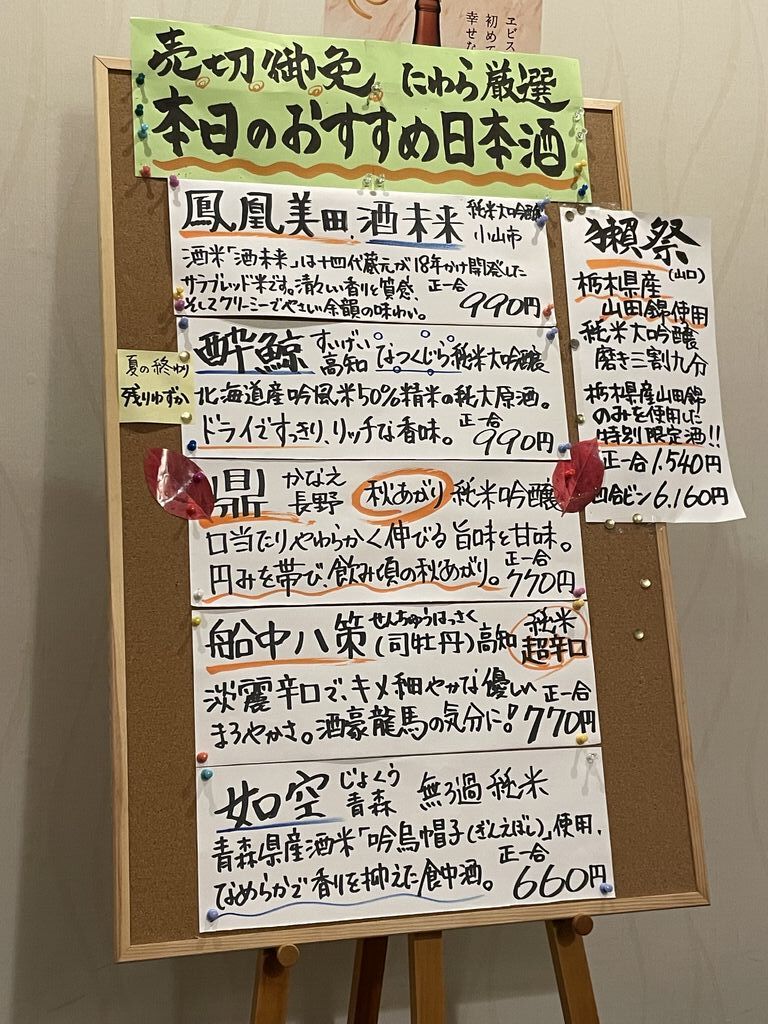 ヱビス
初めて
幸せな
売切御免 にわら厳選
本日のおすすめ日本酒
鳳凰美田 酒未来 純米大吟醸
小山市
酒米「酒未来」は十四代蔵元が18年かけ開発した
サラブレッド米です。清々しい香りと質感、
そしてクリーミーでやさしい余韻の味わい。
正一合 990円
夏の終わり
残りゆずか
酔鯨 すいげい 高知 なつくじら 純米大吟醸
北海道産吟風米50%精米の純大原酒。
ドライですっきり、リッチな香味。
正一合 990円
鼎 かなえ 長野 秋あがり 純米吟醸
口当たりやわらかく伸びる旨味と甘味。
円みを帯び、飲み頃の秋あがり。
正一合 770円
船中八策 せんちゅうはっさく (司牡丹)高知 純米 超辛口
淡麗辛口で、キメ細やかな優しい
まろやかさ。酒豪龍馬の気分に!
正一合 770円
如空 じょくう 青森 無ろ過 純米
青森県産酒米「吟烏帽子(ぎんえぼし)」使用、
なめらかで香りを抑えた食中酒。
正一合 660円
獺祭
(山口)
栃木県産
山田錦使用
純米大吟醸
磨き三割九分
栃木県産山田錦
のみを使用した
特別限定酒!!
正一合 1.540円
四合ビン 6.160円